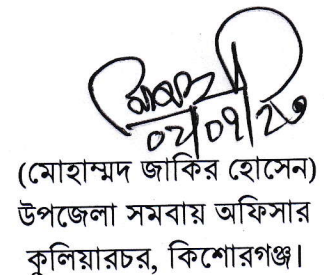 ০২/০৭/২৩
(মোহাম্মদ জাকির হোসেন)
উপজেলা সমবায় অফিসার
কুলিয়ারচর, কিশোরগঞ্জ।